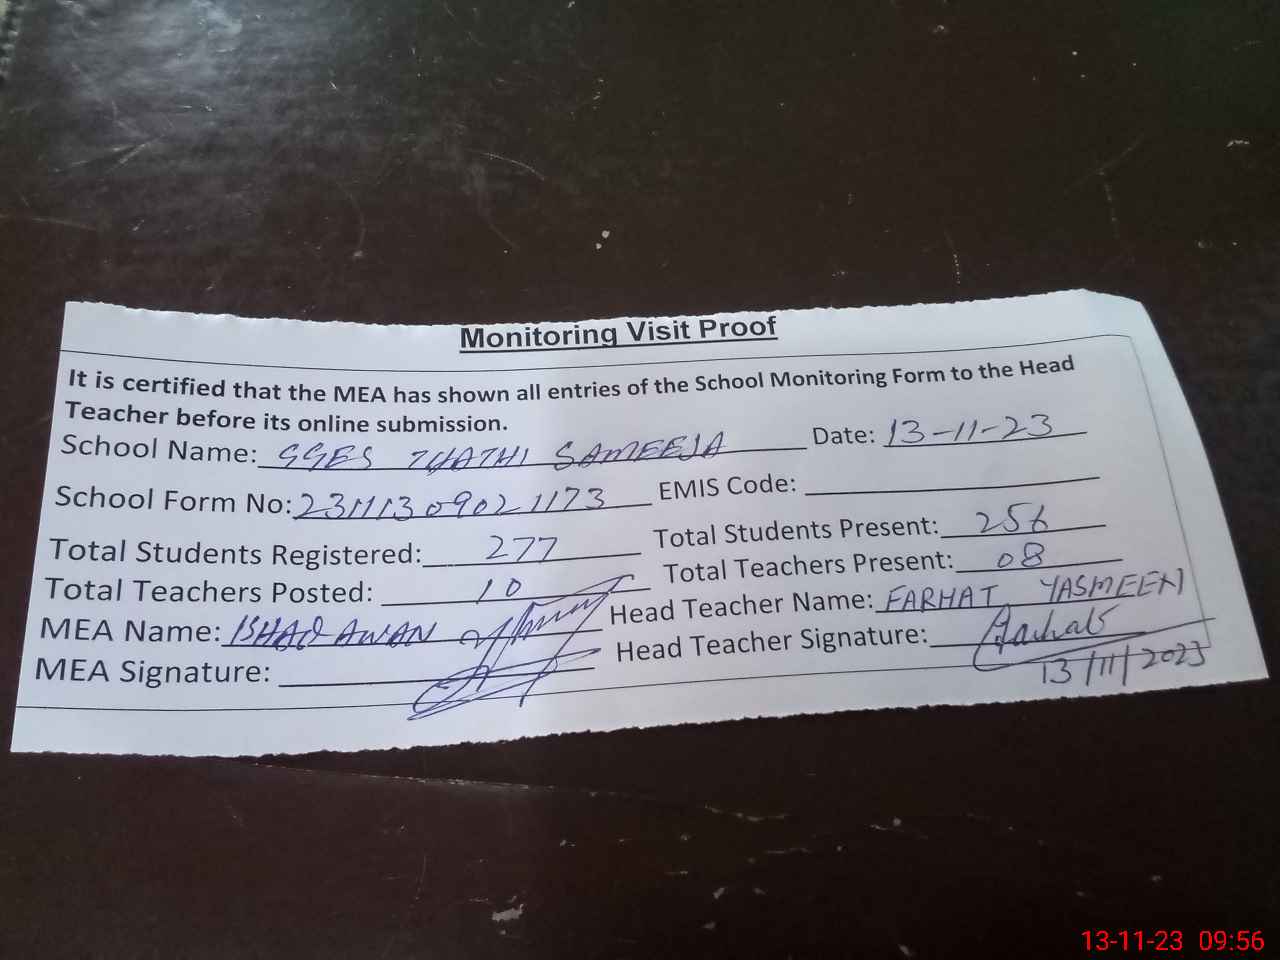 Monitoring Visit Proof
It is certified that the MEA has shown all entries of the School Monitoring Form to the Head
Teacher before its online submission.
School Name: GGES THATHI SAMEEJA Date: 13-11-23
School Form No: 23111309021173 EMIS Code:
Total Students Registered: 277 Total Students Present: 256
Total Teachers Posted: 10 Total Teachers Present: 08
MEA Name: ISHAQ AWAN Head Teacher Name: FARHAT YASMEEN
MEA Signature: Head Teacher Signature: Farhat
13/11/2023
13-11-23 09:56